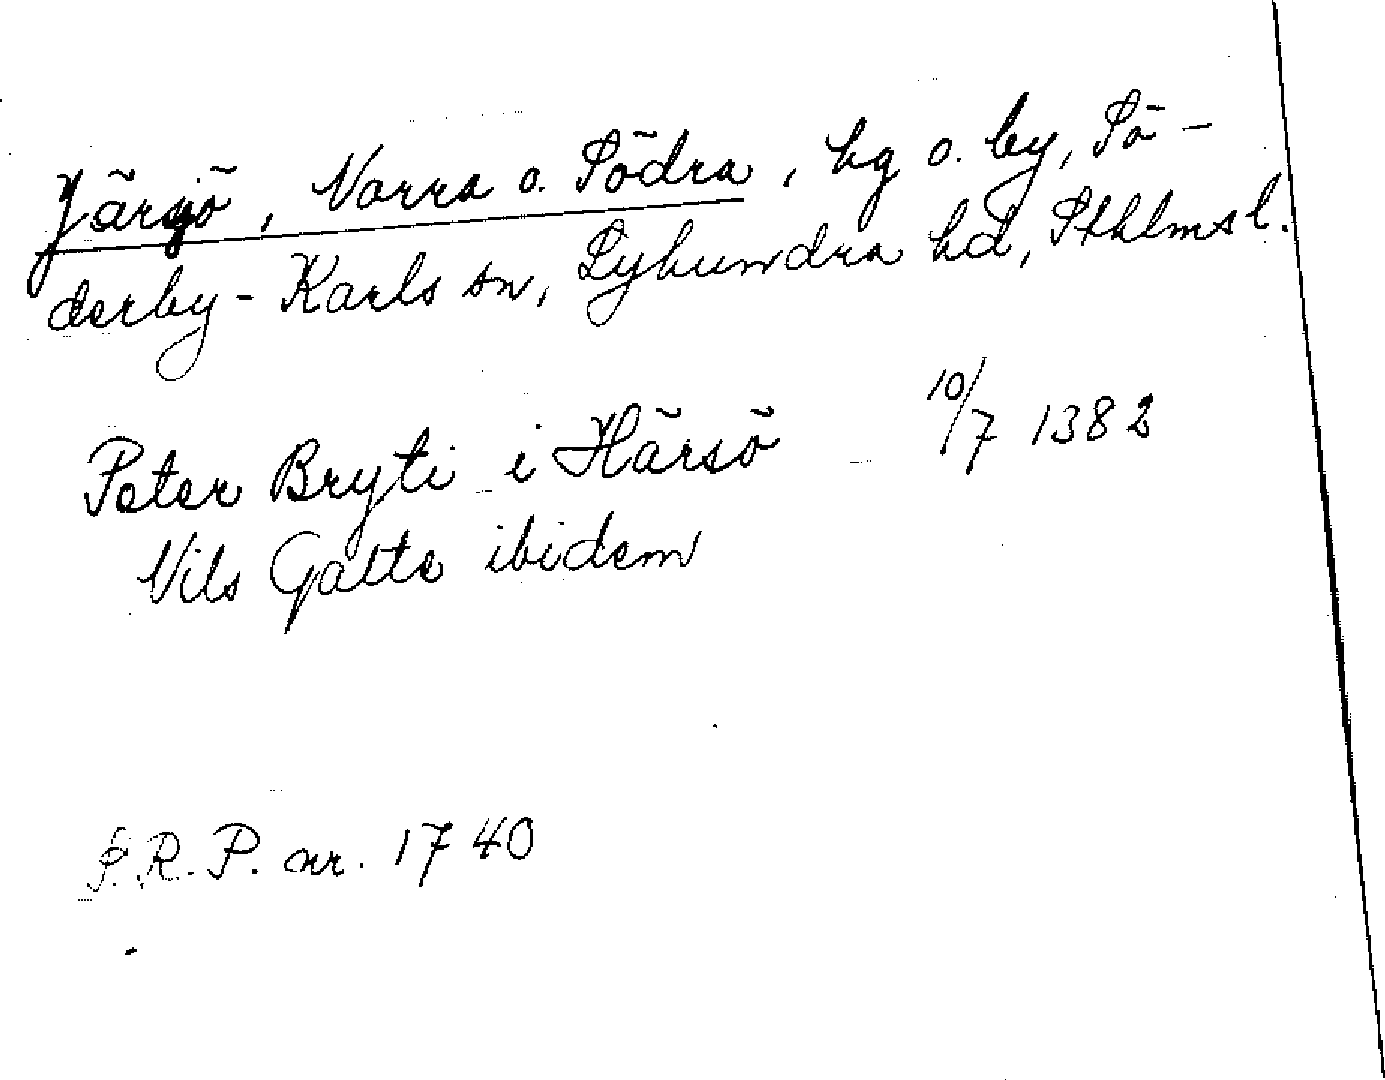 Järsjö, Norra o. Södra, hg o. by, Sö-
derby-Karls sn, Lyhundra hd, Sthlms l.
Peter Bryti i Härsö 10/7 1382
Nils Gatte ibidem
S.R.P. nr. 1740